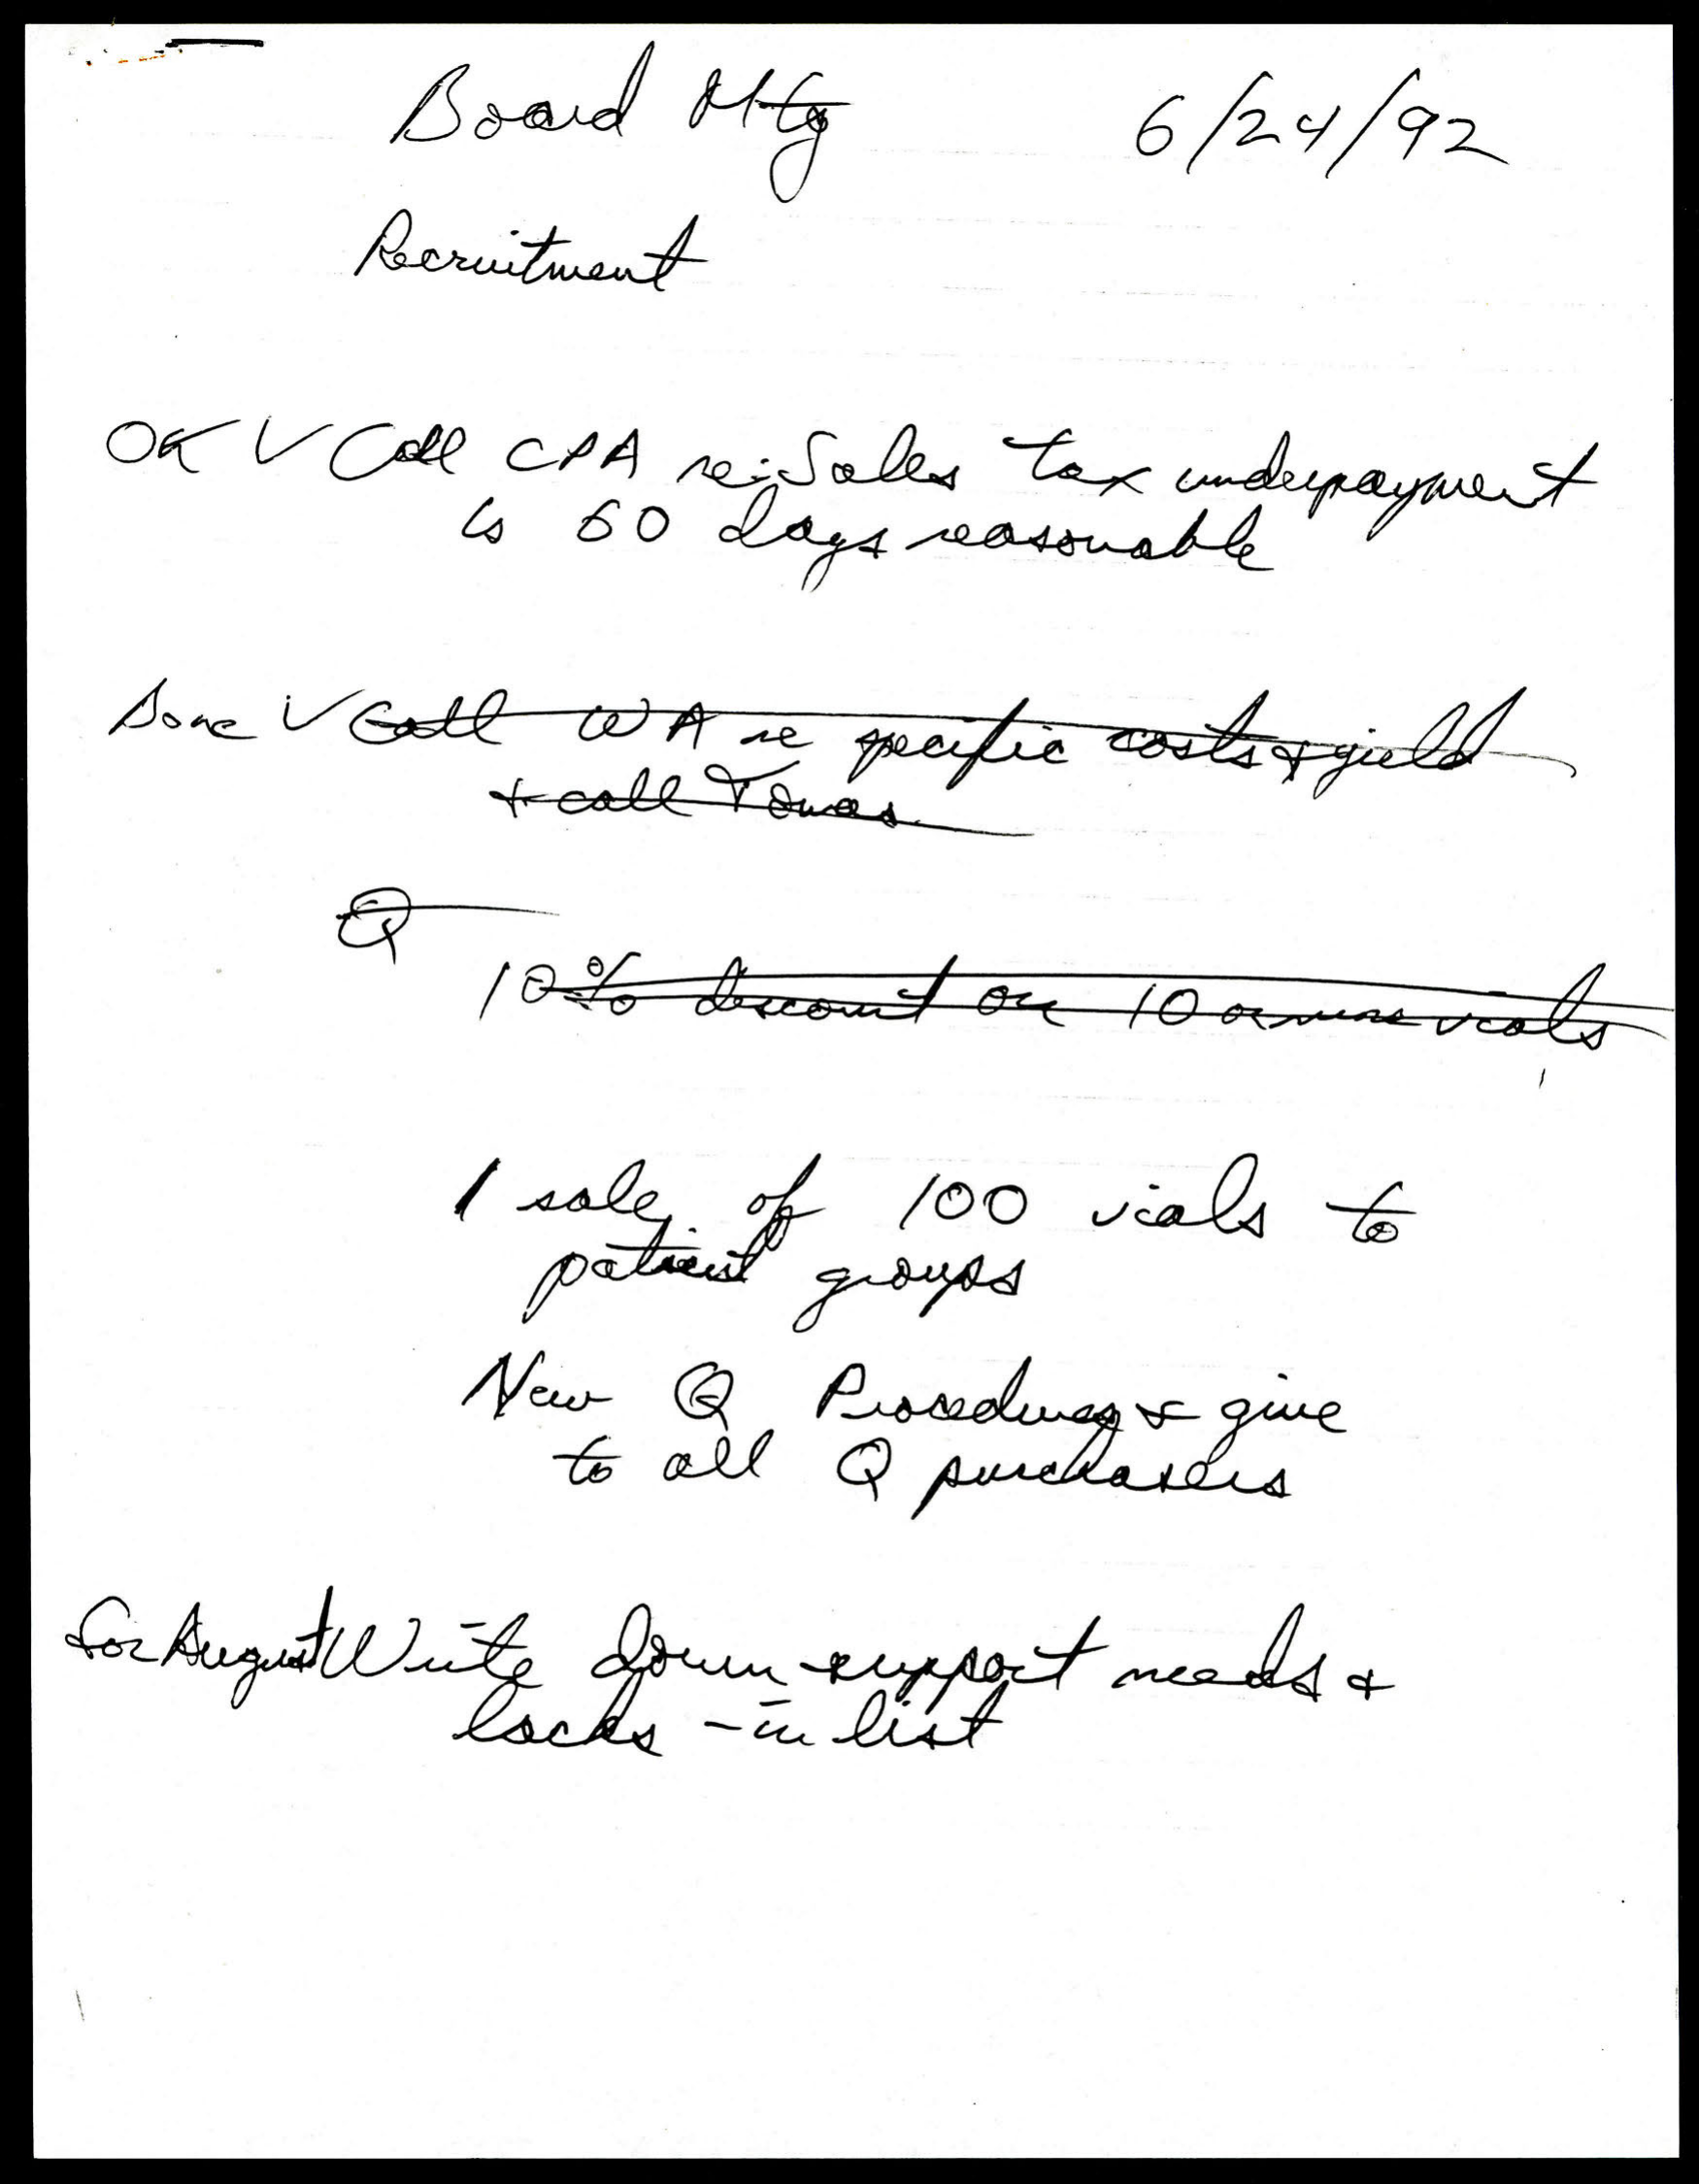 Board Mtg 6/24/92
Recruitment
OK ✓ Call CPA re: Sales tax underpayment
is 60 days reasonable
Done ✓ Call WA re specific costs & yield
+ call Tomas
Q
10% discount on 10 or more vials
1 sale of 100 vials to
patient groups
New Q Procedures & give
to all Q purchasers
for August Write down support needs &
lacks - in list